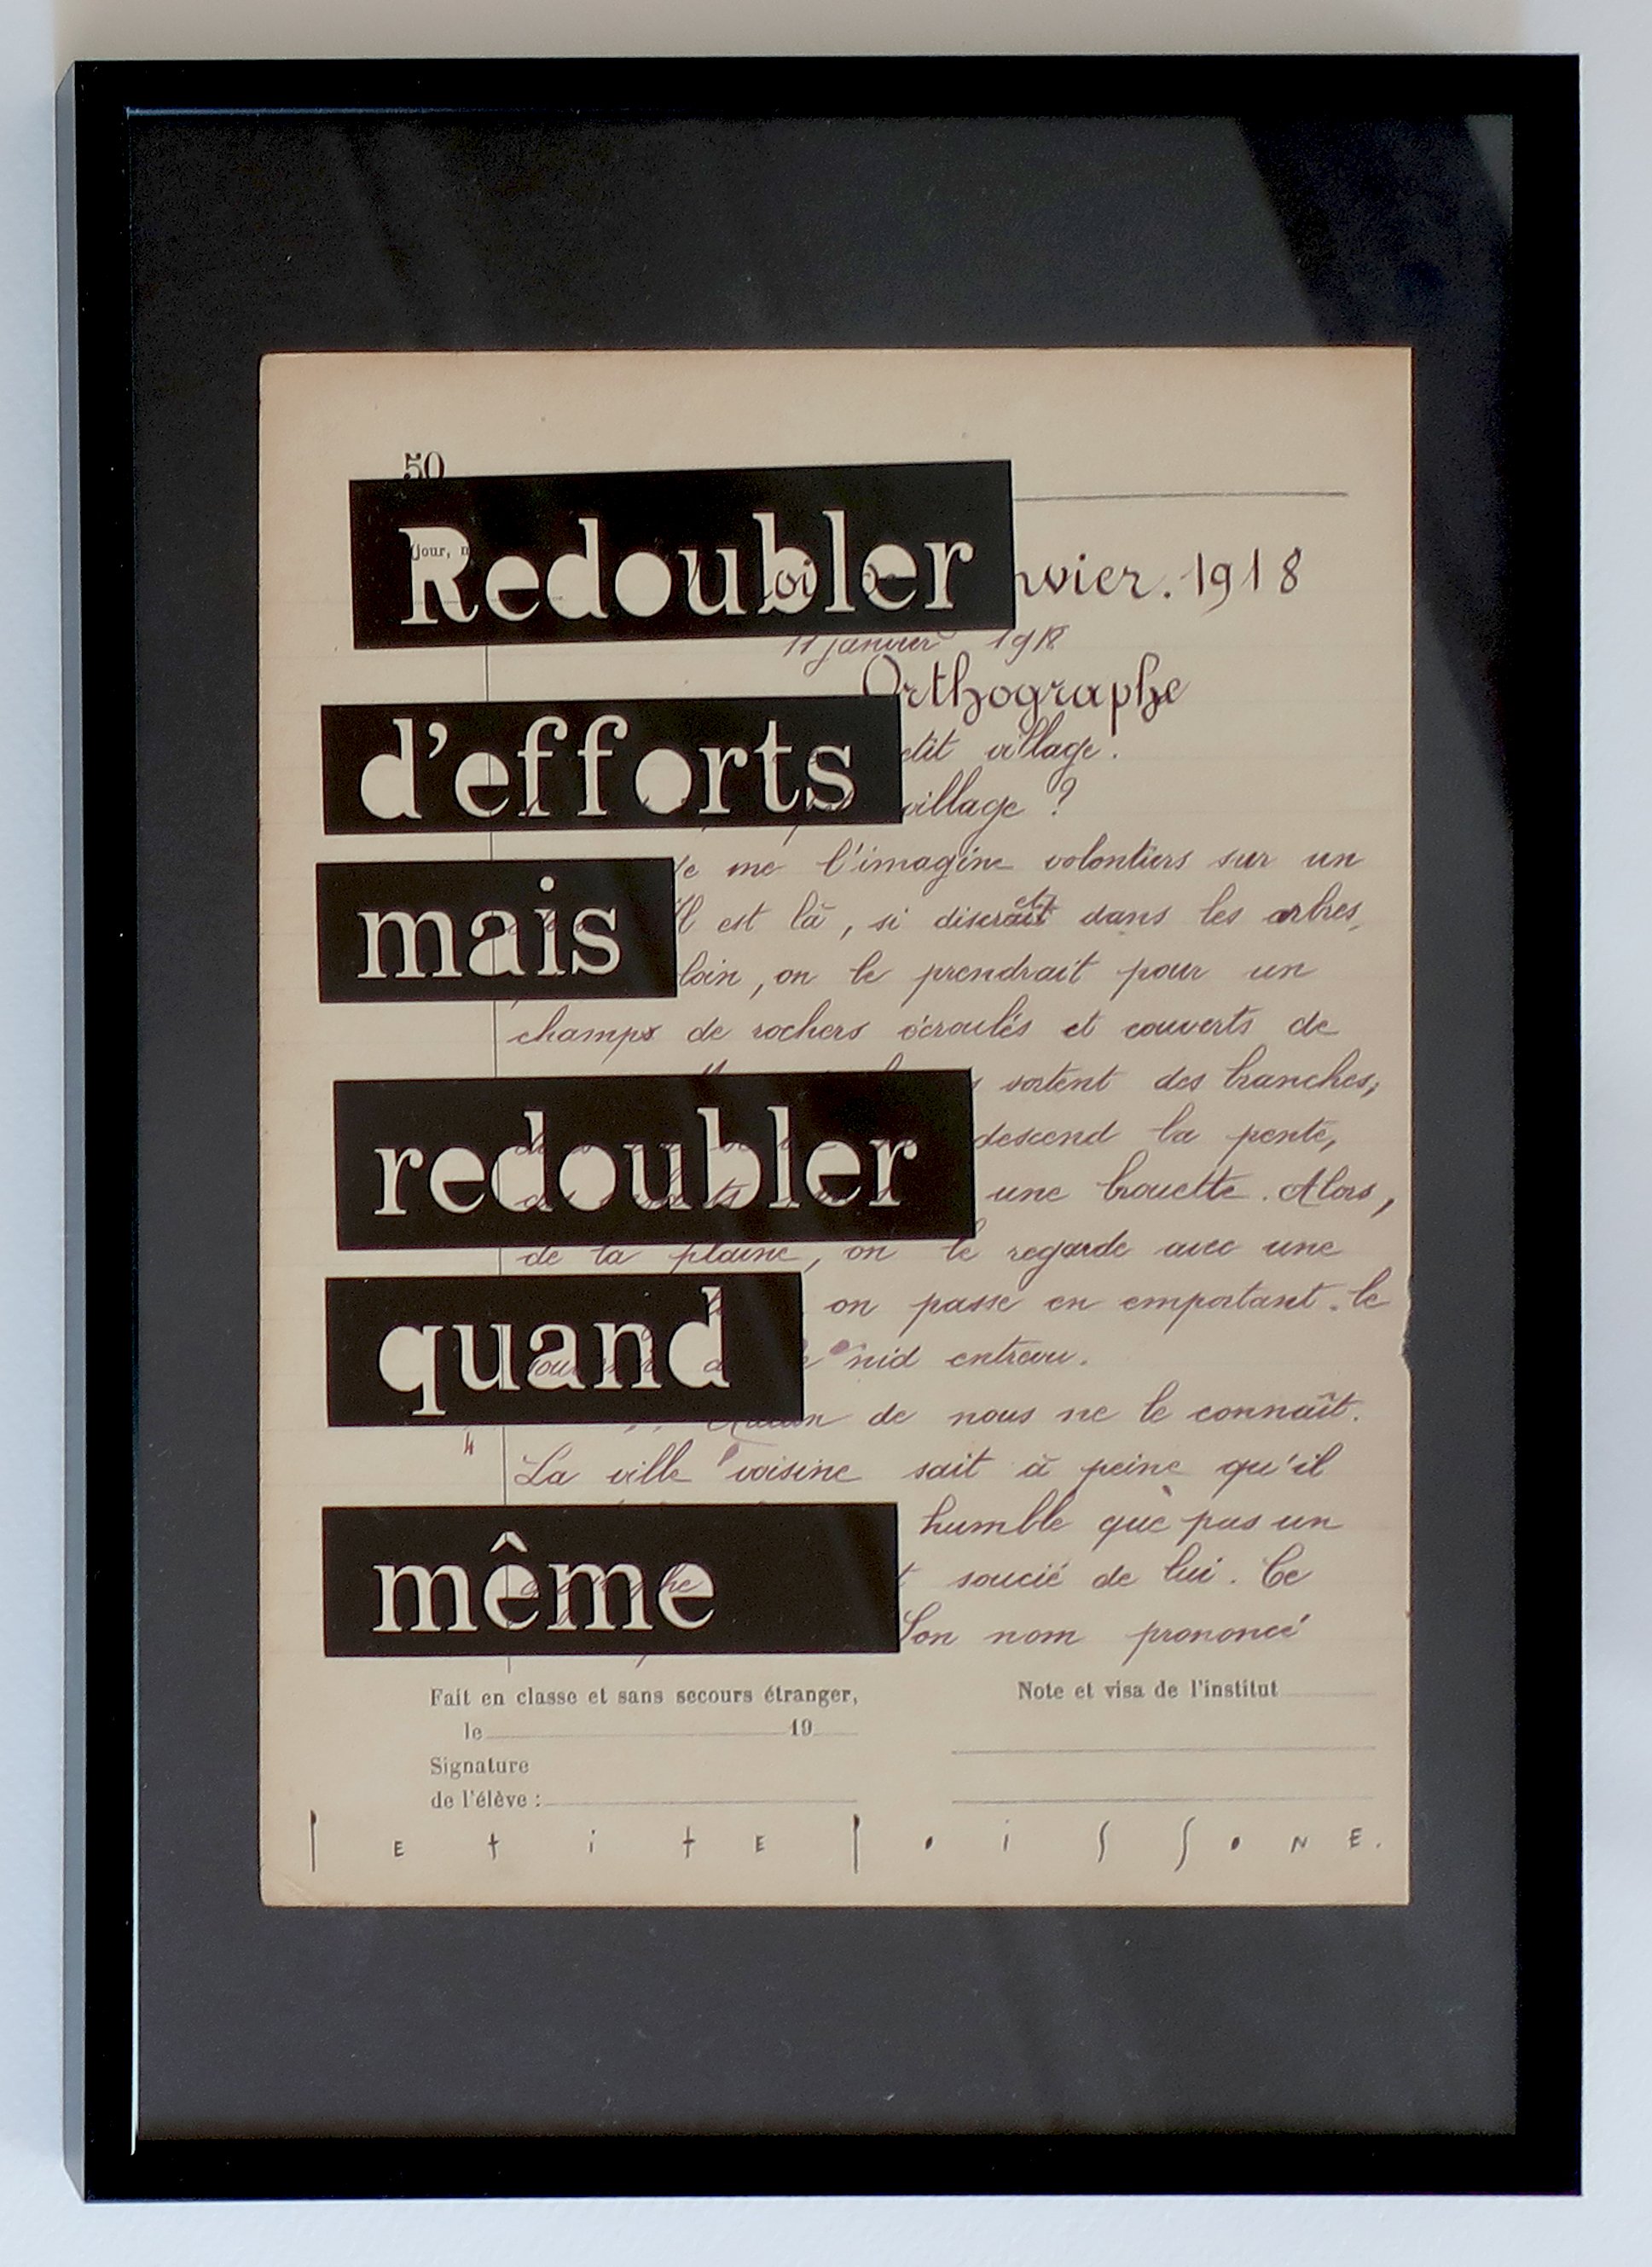 50
Redoubler
(jour,
nvier. 1918
11 janvier 1918
Orthographe
d'efforts
etit village.
village ?
mais
me l'imagine volontiers sur un
Il est là, si discrait et dans les arbres,
loin, on le prendrait pour un
champs de rochers écroulés et couverts de
redoubler
s sortent des branches,
descend la pente,
une brouette. Alors,
de la plaine, on le regarde avec une
quand
on passe en emportant. le
nid entrevu.
Aucun de nous ne le connaît.
4
La ville voisine sait à peine qu'il
même
humble que pas un
t soucié de lui. Ce
Son nom prononcé
Fait en classe et sans secours étranger,
le 19
Signature
de l'élève :
Note et visa de l'institut
PEtitE PoiSSoNE.